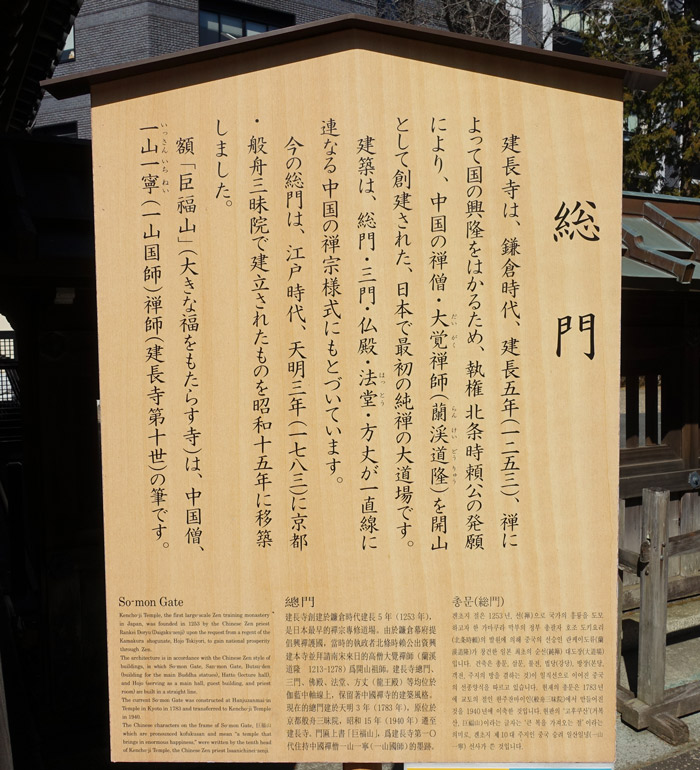 総門
建長寺は、鎌倉時代、建長五年(一二五三)、禅に
よって国の興隆をはかるため、執権 北条時頼公の発願
により、中国の禅僧・大覚禅師(蘭渓道隆)を開山
として創建された、日本で最初の純禅の大道場です。
建築は、総門・三門・仏殿・法堂・方丈が一直線に
連なる中国の禅宗様式にもとづいています。
今の総門は、江戸時代、天明三年(一七八三)に京都
・般舟三昧院で建立されたものを昭和十五年に移築
しました。
額「巨福山」(大きな福をもたらす寺)は、中国僧、
一山一寧(一山国師)禅師(建長寺第十世)の筆です。
So-mon Gate
Kencho-ji Temple, the first large-scale Zen training monastery
in Japan, was founded in 1253 by the Chinese Zen priest
Rankei Doryu (Daigaku zenji) upon the request from a regent of the
Kamakura shogunate, Hojo Tokiyori, to gain national prosperity
through Zen.
The architecture is in accordance with the Chinese Zen style of
buildings, in which So-mon Gate, San-mon Gate, Butsu-den
(building for the main Buddha statues), Hatto (lecture hall),
and Hojo (serving as a main hall, guest building, and priest
room) are built in a straight line.
The current So-mon Gate was constructed at Hanjuzanmai-in
Temple in Kyoto in 1783 and transferred to Kencho-ji Temple
in 1940.
The Chinese characters on the frame of So-mon Gate, 巨福山
which are pronounced kofukusan and mean "a temple that
brings in enormous happiness," were written by the tenth head
of Kencho-ji Temple, the Chinese Zen priest Issanichinei zenji.
總門
建長寺創建於鎌倉時代建長 5 年 (1253 年)、
是日本最早的禪宗專修道場。由於鎌倉幕府提
倡興禪護國，當時的執政者北條時賴公出資興
建本寺並拜請南宋來日的高僧大覺禪師 (蘭溪
道隆 1213-1278) 爲開山祖師。建長寺總門、
三門、佛殿、法堂、方丈 (龍王殿) 等均位於
伽藍中軸線上，保留著中國禪寺的建築風格。
現在的總門建於天明 3 年 (1783 年)，原位於
京都般舟三昧院，昭和 15 年 (1940 年) 遷至
建長寺。門匾上書「巨福山」，爲建長寺第一〇
代住持中國禪僧一山一寧 (一山國師) 的墨跡。
총문(総門)